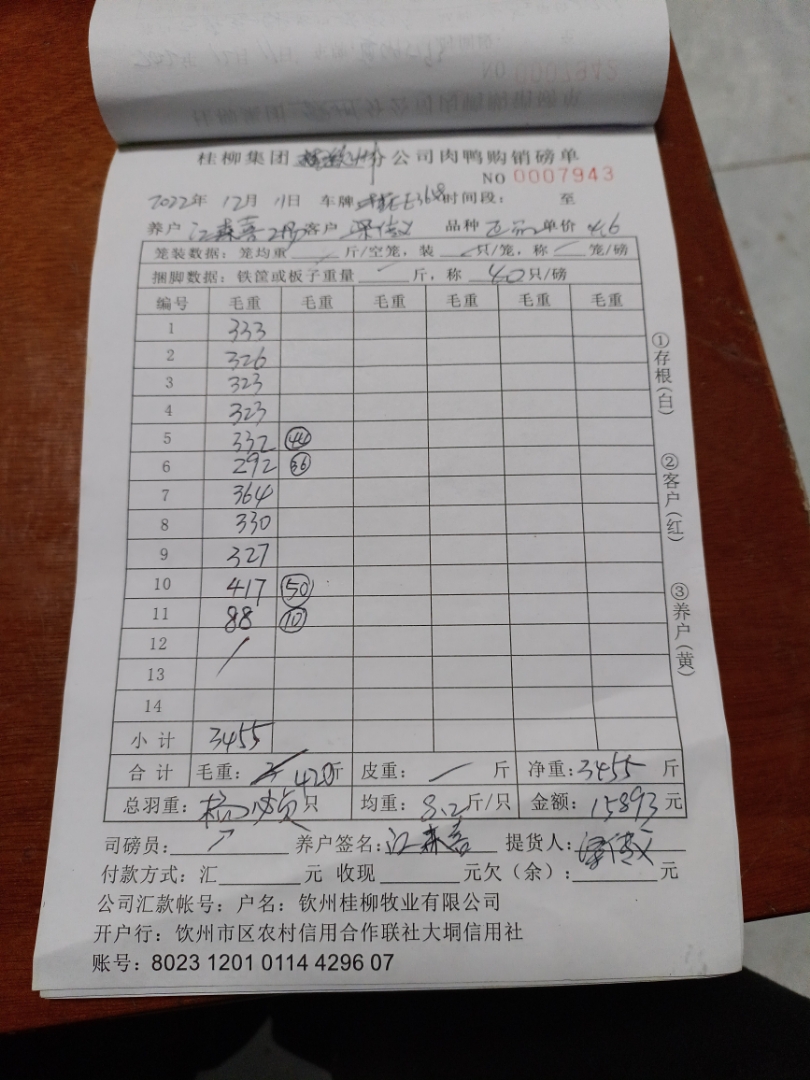 NO 0007942
桂柳集团 分公司肉鸭购销磅单
NO 0007943
2022年 12月 11日 车牌 时间段： 至
养户 江森喜 客户 品种 正品 单价 4.6
笼装数据：笼均重 / 斤/空笼，装 / 只/笼，称 / 笼/磅
捆脚数据：铁筐或板子重量 / 斤，称 40 只/磅
编号 毛重 毛重 毛重 毛重 毛重 毛重
1 333
2 326
3 323
4 323
5 332 44
6 292 36
7 364
8 330
9 327
10 417 50
11 88 10
12 /
13
14
小计 3455
合计 毛重： 420 斤 皮重： / 斤 净重：3455 斤
总羽重： 只 均重：8.2 斤/只 金额：15893 元
司磅员： 养户签名：江森喜 提货人：
付款方式：汇 元 收现 元欠（余）： 元
公司汇款帐号：户名：钦州桂柳牧业有限公司
开户行：钦州市区农村信用合作联社大垌信用社
账号：8023 1201 0114 4296 07
①存根(白)
②客户(红)
③养户(黄)